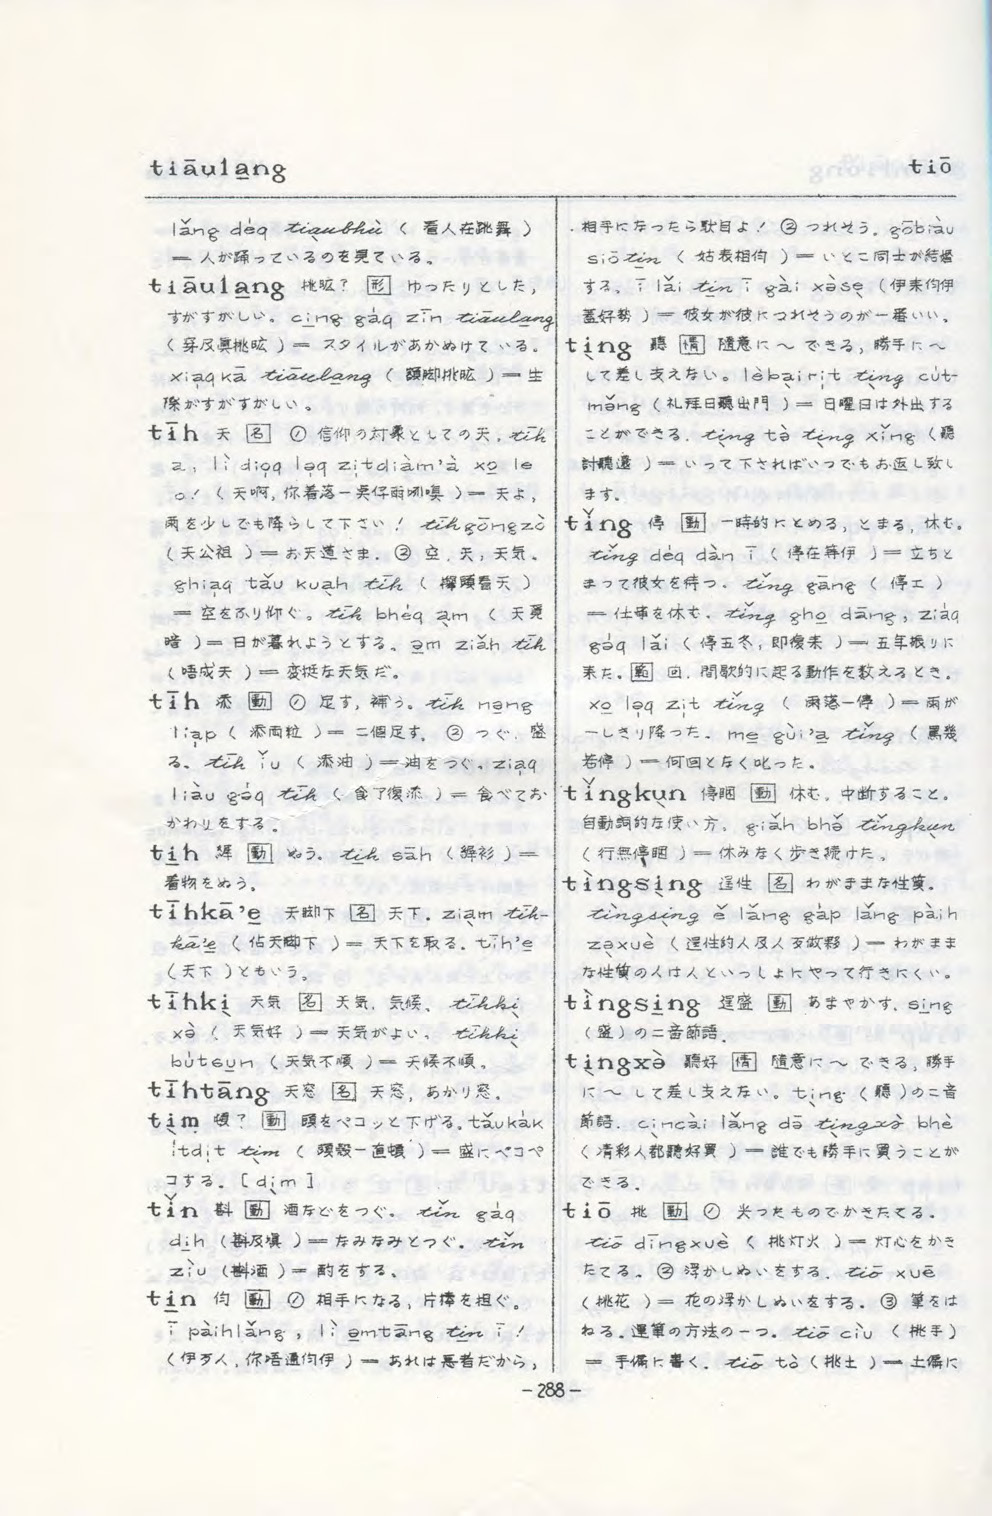 tiāulang
tiō
lǎng déq tiaubhù ( 看人在跳舞 )
= 人が踊っているのを見ている。
tiāulang 桃昡? [形] ゆったりとした,
すがすがしい。cing gáq zīn tiāulang
( 穿及眞桃昡 ) = スタイルがあかぬけている。
xiaq kā tiāulang ( 頭脚桃昡 ) = 生
際がすがすがしい。
tīh 天 [名] ① 信仰の対象としての天. tīh
a, lì dioq laq zitdiàm'à xo le
o! ( 天啊, 你着落一点仔雨 ) = 天よ,
雨を少しでも降らして下さい! tīhgōngzò
( 天公祖 ) = お天道さま. ② 空. 天, 天気。
ghiaq tǎu kuah tīh ( 擇頭看天 )
= 空をふり仰ぐ。tīh bhéq am ( 天覓
暗 ) = 日が暮れようとする。am ziǎh tīh
( 唔成天 ) = 変梃な天気だ。
tīh 添 [動] ① 足す, 補う。tīh nang
liap ( 添両粒 ) = 二個足す。② つぐ. 盛
る。tīh ǐu ( 添油 ) = 油をつぐ. ziaq
liàu gáq tīh ( 食了復添 ) = 食べてお
かわりをする。
tih [動] ぬう. tih sāh ( 衫 ) =
着物をぬう。
tīhkā'e 天脚下 [名] 天下. ziam tīh-
kā'e ( 佔天脚下 ) = 天下を取る. tīh'e
( 天下 ) ともいう。
tīhki 天気 [名] 天気. 気候. tīhki
xà ( 天気好 ) = 天気がよい。tīhki
bútsun ( 天気不順 ) = 天候不順。
tīhtāng 天窓 [名] 天窓, あかり窓。
tim 頓? [動] 頭をペコッと下げる. tǎukàk
ítdit tim ( 頭殻一直頓 ) = 盛にペコペ
コする. [dim]
tǐn 斟 [動] 酒などをつぐ。tǐn gáq
dih ( 斟及塡 ) = なみなみとつぐ. tǐn
ziu ( 斟酒 ) = 酌をする。
tin 伨 [動] ① 相手になる, 片棒を担ぐ。
ī pàihlǎng, lì amtāng tin ī!
( 伊歹人, 你唔通伨伊 ) = あれは悪者だから,
相手になったら駄目よ! ② つれそう. gōbiàu
siō tin ( 姑表相伨 ) = いとこ同士が結婚
する. ī lǎi tin ī gài xàse ( 伊来伨伊
蓋好勢 ) = 彼女が彼につれそうのが一番いい。
ting 聴 [情] 随意に〜できる, 勝手に〜
して差し支えない。lèbairit ting cút-
mǎng ( 礼拜日聴出門 ) = 日曜日は外出する
ことができる. ting tà ting xǐng ( 聴
討聴還 ) = いって下さればいつでもお返し致し
ます。
tǐng 停 [動] 一時的にとめる, とまる, 休む。
tǐng déq dàn ī ( 停在等伊 ) = 立ちど
まって彼女を待つ. tǐng gāng ( 停工 )
= 仕事を休む. tǐng gho dāng, ziáq
gáq lǎi ( 停五冬, 即復来 ) = 五年振りに
来た。[範] 回. 間歇的に起る動作を数えるとき。
xo laq zit tǐng ( 雨落一停 ) = 雨が
一しきり降った. me gùi'a tǐng ( 罵幾
若停 ) = 何回となく叱った。
tǐngkun 停睏 [動] 休む. 中断すること。
自動詞的な使い方. giǎh bhǎ tǐngkun
( 行無停睏 ) = 休みなく歩き続けた。
tìngsing 逞性 [名] わがままな性質。
tìngsing ě lǎng gáp lǎng pàih
zaxuè ( 逞性的人及人歹做夥 ) = わがまま
な性質の人は人といっしょにやって行きにくい。
tìngsing 逞盛 [動] あまやかす. sing
( 盛 ) の二音節語.
tingxà 聴好 [情] 随意に〜できる, 勝手
に〜して差し支えない. ting ( 聴 ) の二音
節語. cincài lǎng dā tingxà bhè
( 凊彩人都聴好買 ) = 誰でも勝手に買うことが
できる.
tiō 挑 [動] ① 尖ったものでかきたてる.
tiō dīngxuè ( 挑灯火 ) = 灯心をかき
たてる。② 浮かしぬいをする. tiō xuē
( 挑花 ) = 花の浮かしぬいをする. ③ 筆をは
ねる. 運筆の方法の一つ. tiō ciu ( 挑手 )
= 手偏に書く. tiō tò ( 挑土 ) = 土偏に
- 288 -